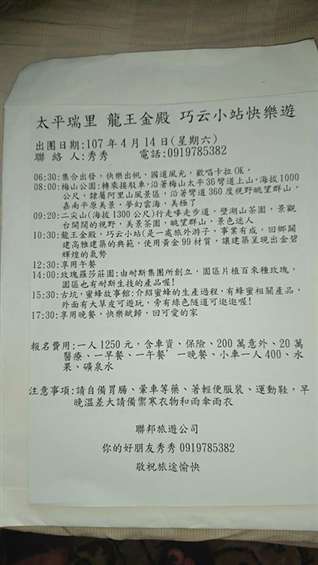 太平瑞里 龍王金殿 巧云小站快樂遊
出團日期:107年4月14日(星期六)
聯絡人:秀秀 電話:0919785382
06:30:集合出發,快樂出帆,國道風光,歡唱卡拉OK,
08:00:梅山公園:轉乘接駁車,沿著梅山太平36彎道上山,海拔1000
公尺,隸屬阿里山風景區,沿著彎道360度視野眺望群山,
嘉南平原美景,夢幻雲海,美極了
09:20:二尖山(海拔1300公尺)行走嗶走步道,璧湖山茶園,景觀
台開闊的視野,美景茶園,眺望群山,景色迷人
10:30:龍王金殿,巧云小站(是一處旅外游子,事業有成,回鄉闢
建高雄建築的典範,使用黃金99材質,讓建築呈現出金碧
輝煌的氣勢
12:30:享用午餐
14:00:玫瑰蘿莎莊園:由耐斯集團所創立,園區片植百來種玫瑰,
園區也有耐斯生技的產品喔!
15:30:古坑,蜜蜂故事館:介紹蜜蜂的生產過程,有蜂蜜相關產品,
外面有大草皮可遊玩,旁有綠色隧道可逛逛喔!
17:30:享用晚餐,快樂賦歸,回可愛的家
報名費用:一人1250元,含車資、保險、200萬意外、20萬
醫療、一早餐、一午餐、一晚餐、小車一人400、水
果、礦泉水
注意事項:請自備胃腸、暈車等藥、著輕便服裝、運動鞋,早
晚溫差大請備禦寒衣物和雨傘雨衣
聯邦旅遊公司
你的好朋友秀秀 0919785382
敬祝旅途愉快